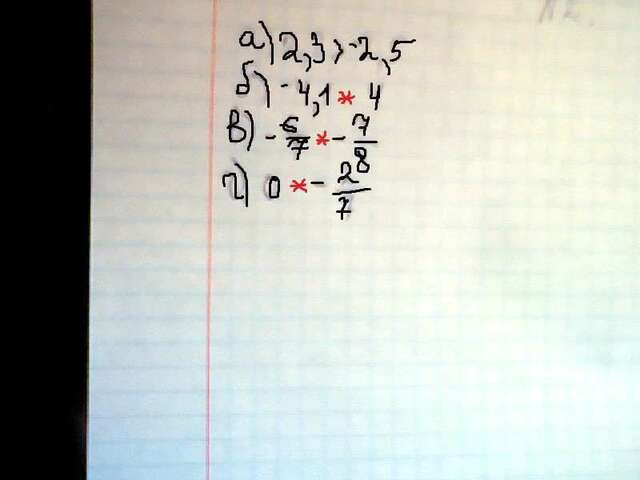 а) 2,3 > -2,5
б) -4,1 * 4
в) -6/7 * -7/8
г) 0 * -2/7